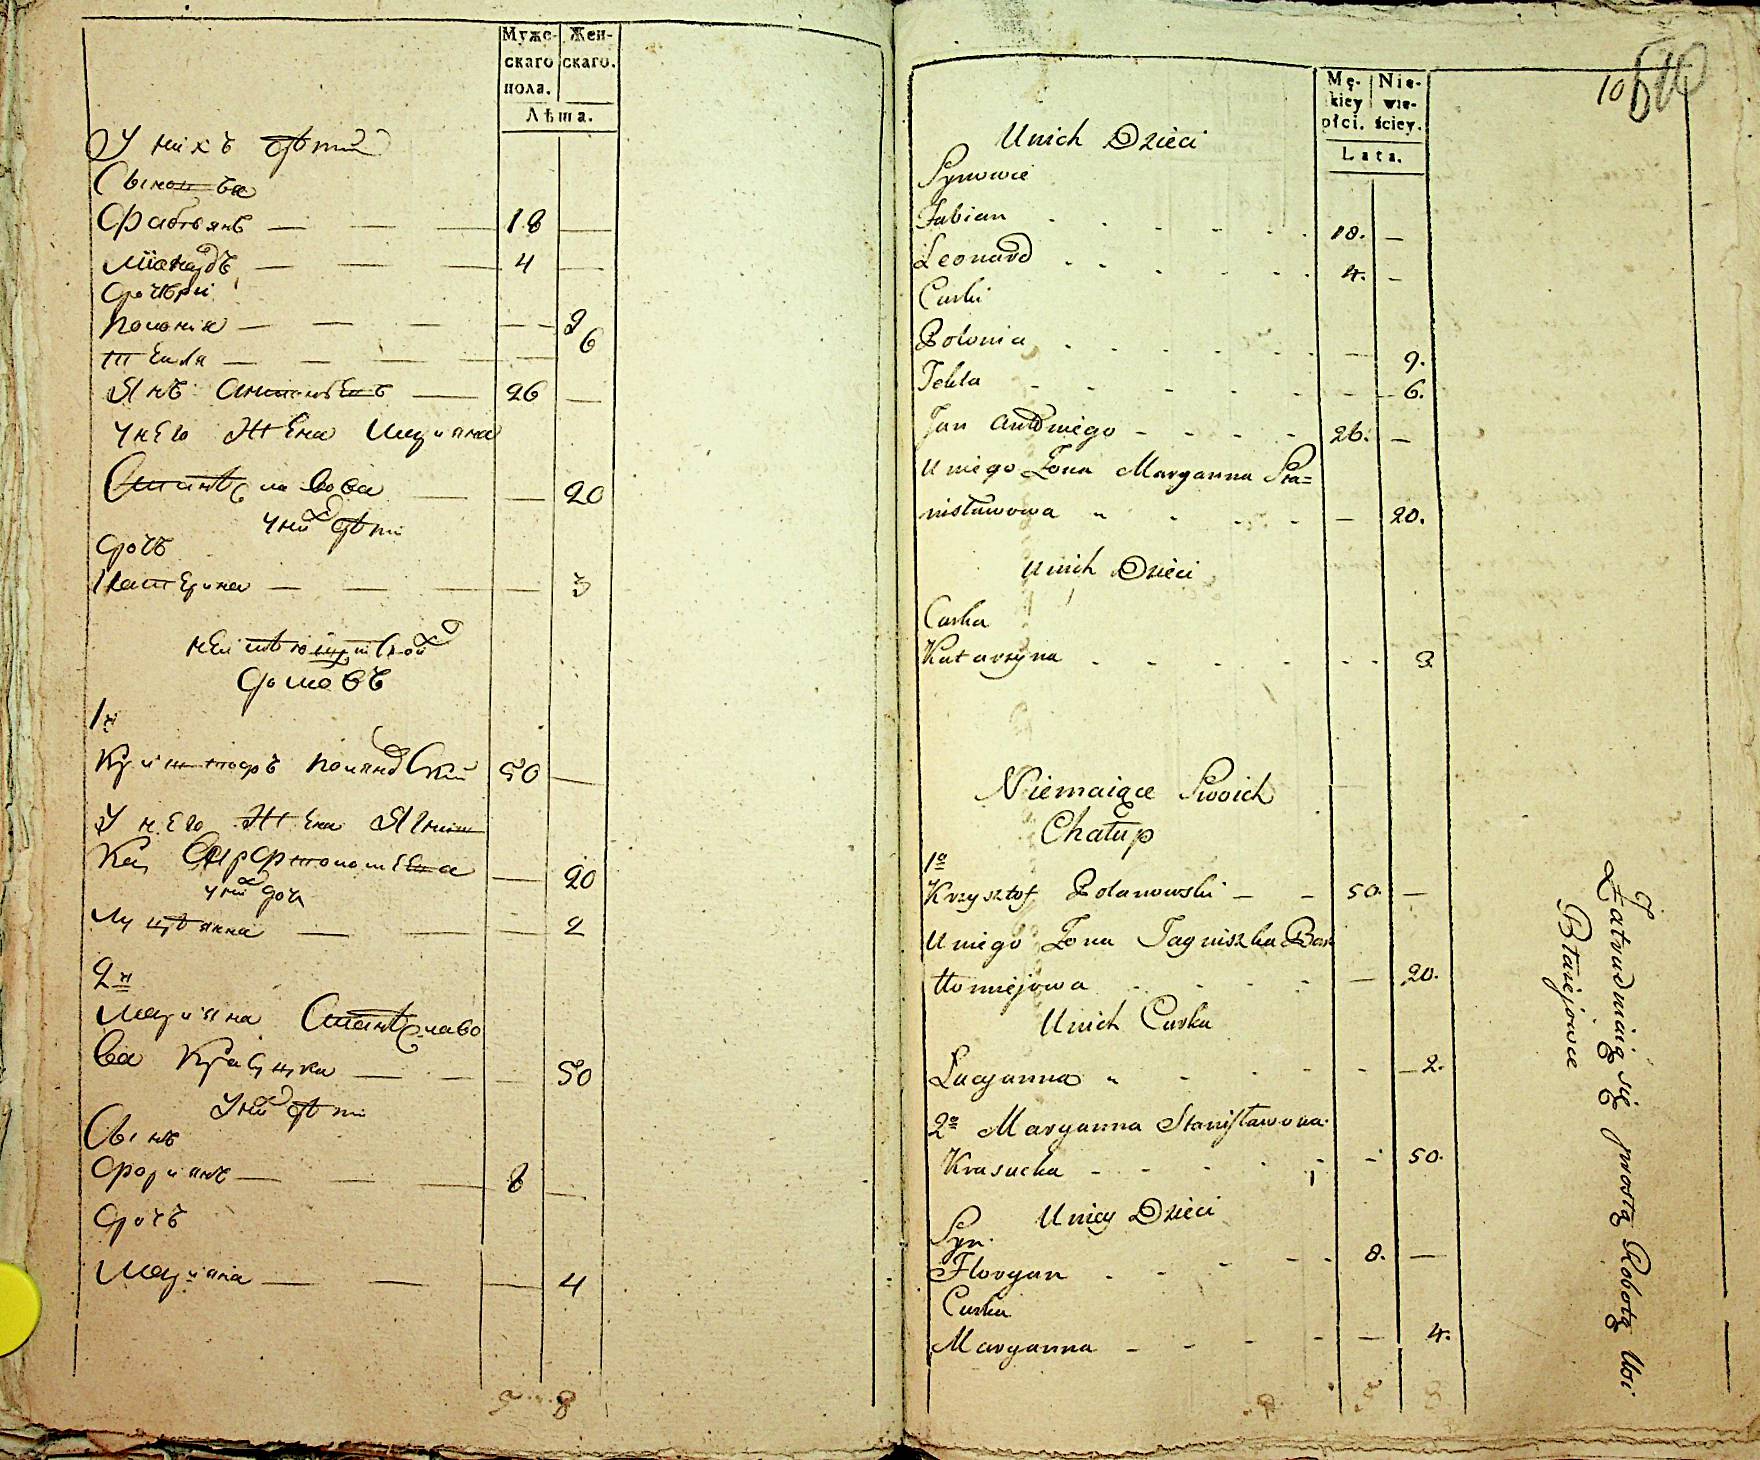 Мужс- Жен-
скаго скаго.
пола.
Лѣта.
У нихъ дѣти
Сыновья
Фабьянъ — — — 18 —
Лїонардъ — — — 4 —
Дочери
Полонiя — — — — 9
Текля — — — — 6
Янъ Антоневъ — 26 —
У него Жена Марiяна
Станиславова — — 20
У них дѣти
Дочь
Катерина — — — — 3
неимѣющие своих
домовъ
1й
Криштофъ Поляновскiй 50 —
У него Жена Ягнiш
ка — 20
У них дочь
Луцiянна — — 2
2я
Марiяна Станиславо
ва Красуцка — — — 50
У ней дѣти
Сынъ
Флорiянъ — — — 8 —
Дочь
Марiяна — — — 4
5 8
10
Mę- Nie-
kiey wie-
płci. ściey.
Lata.
Unich Dzieci
Synowie
Fabian 18. —
Leonard 4. —
Curki
Polonia — 9.
Tekla — 6.
Jan Antoniego 26. —
U niego Żona Maryanna Sta=
nisławowa — 20.
Unich Dzieci
Curka
Katarzyna 3
Niemaiące Swoich
Chałup
1o
Krzysztof Polanowski — 50. —
U niego Żona Jagniszka Bar
tłomiejowa — 20.
Unich Curka
Lucyanna — 2.
2o Maryanna Stanisławowa
Krasucka 50.
Unicy Dzieci
Syn.
Floryan 8. —
Curka
Maryanna — 4.
5 8
Zatrudniaią się prostą Robotą Wsi
Błaiejowce